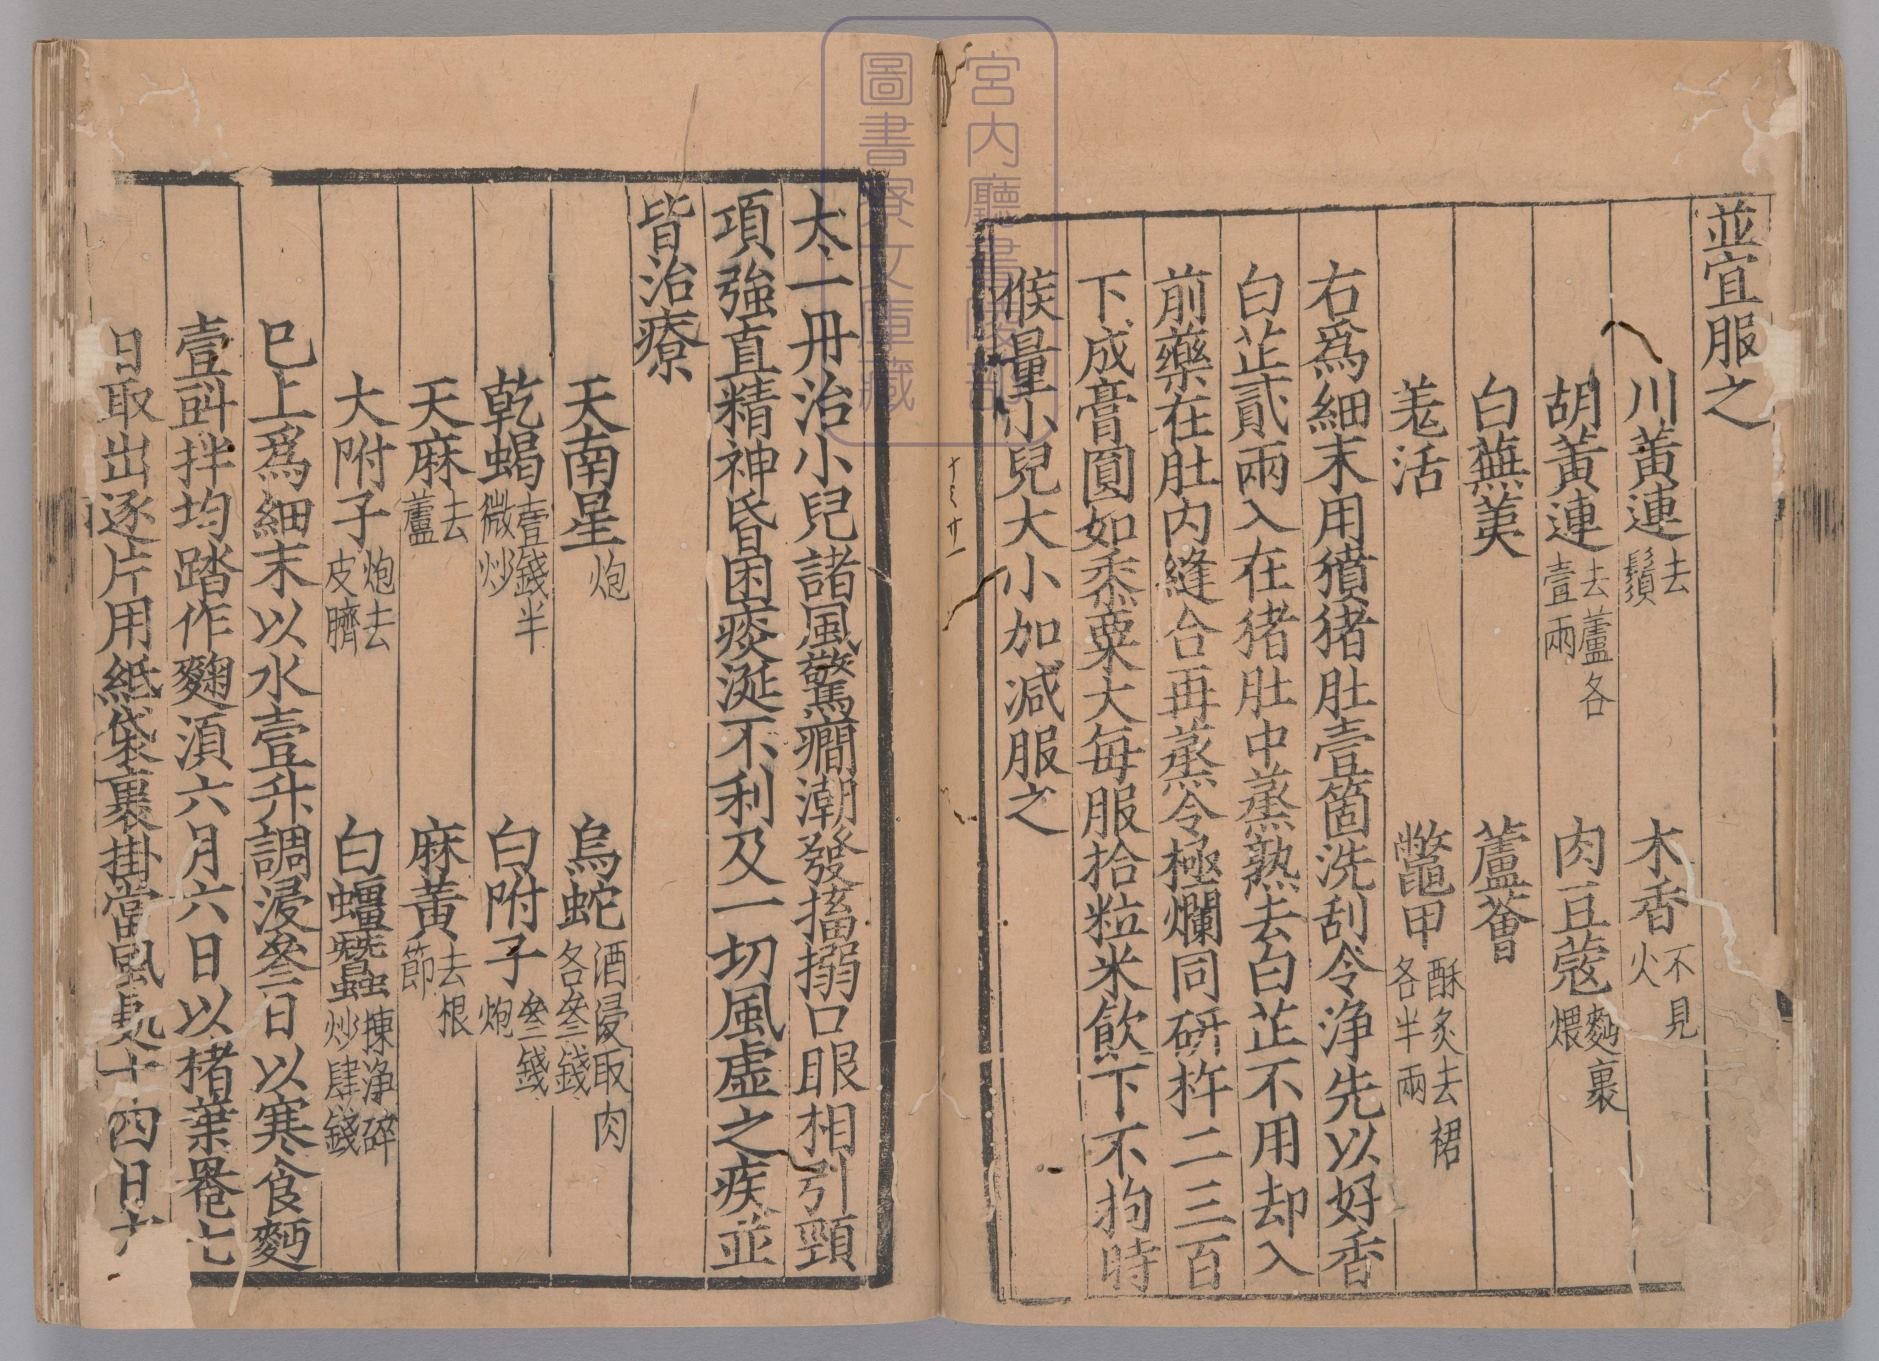 並宜服之
川黃連去鬚 木香不見火
胡黃連去蘆各壹兩 肉豆蔻麪裹煨
白蕪荑 蘆薈
羌活 鼈甲酥炙去裙各半兩
右爲細末用豶猪肚壹箇洗刮令淨先以好香
白芷貳兩入在猪肚中蒸熟去白芷不用却入
前藥在肚内縫合再蒸令極爛同研杵二三百
下成膏圓如黍粟大每服拾粒米飲下不拘時
候量小兒大小加减服之
太一丹治小兒諸風驚癇潮發搐搦口眼相引頸
項強直精神昏困痰涎不利及一切風虛之疾並
皆治療
天南星炮 烏蛇酒浸取肉各叁錢
乾蝎壹錢半微炒 白附子叁錢炮
天麻去蘆 麻黃去根節
大附子炮去皮臍 白殭蠶揀淨碎炒肆錢
巳上爲細末以水壹升調浸叁日以寒食麪
壹㪷拌均踏作麴湏六月六日以楮葉罨七
日取出逐片用紙袋裹掛當風處十四日
宮内廳書陵部
圖書寮文庫藏